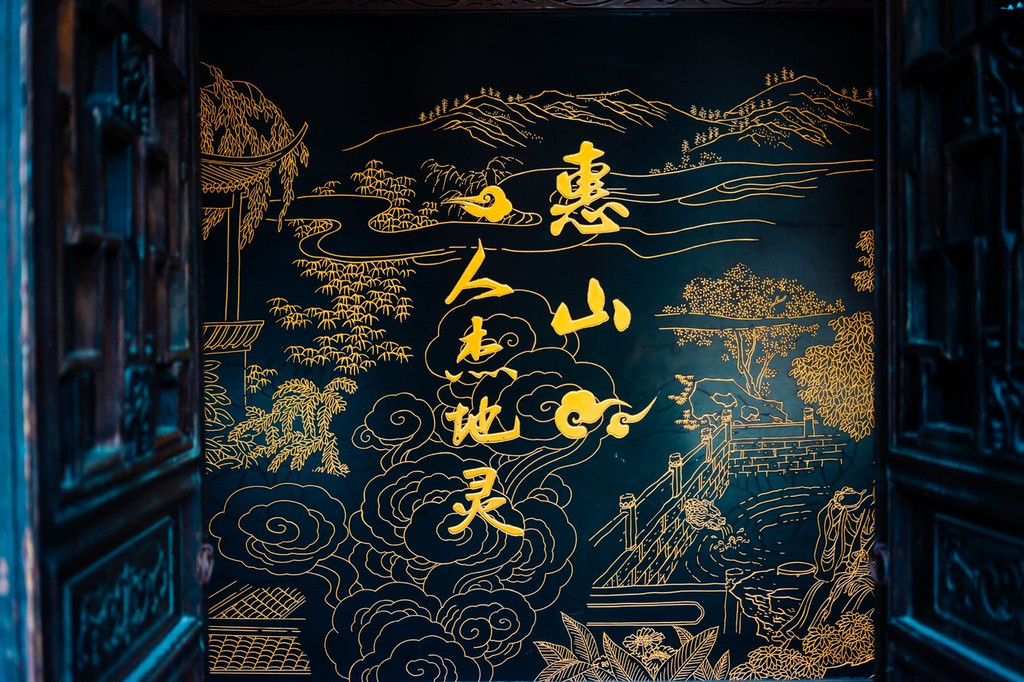 惠山
人杰地灵